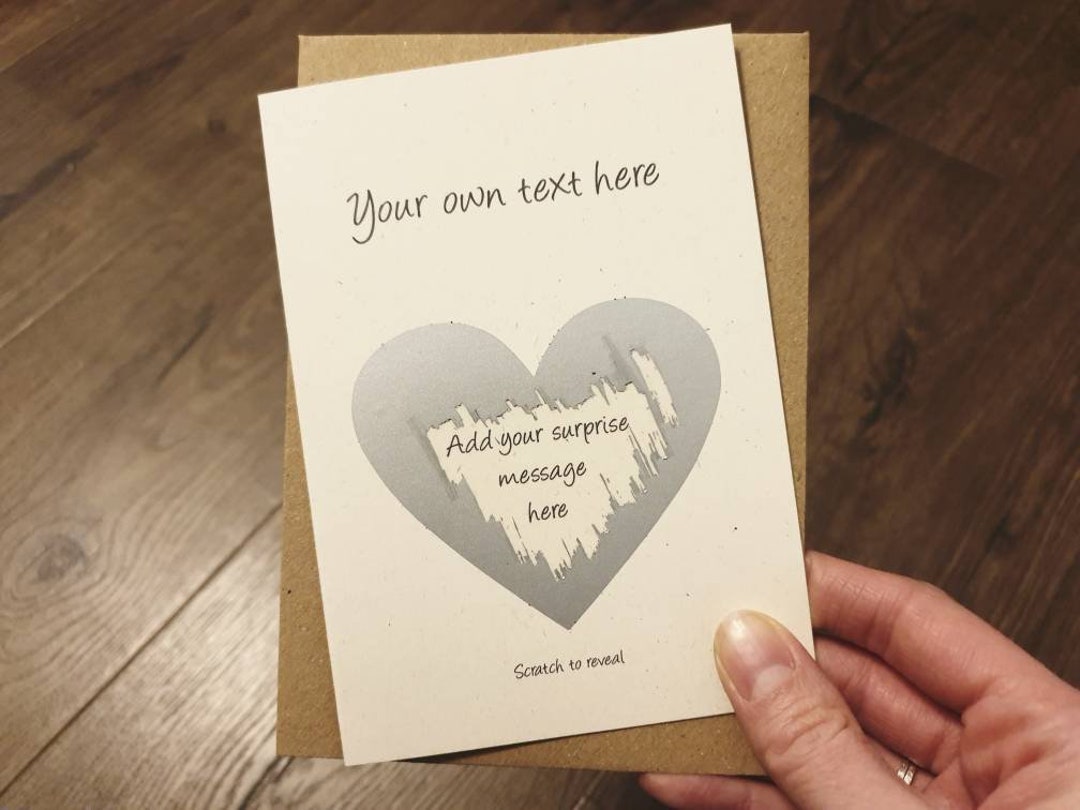 Your own text here
Add your surprise
message
here
Scratch to reveal